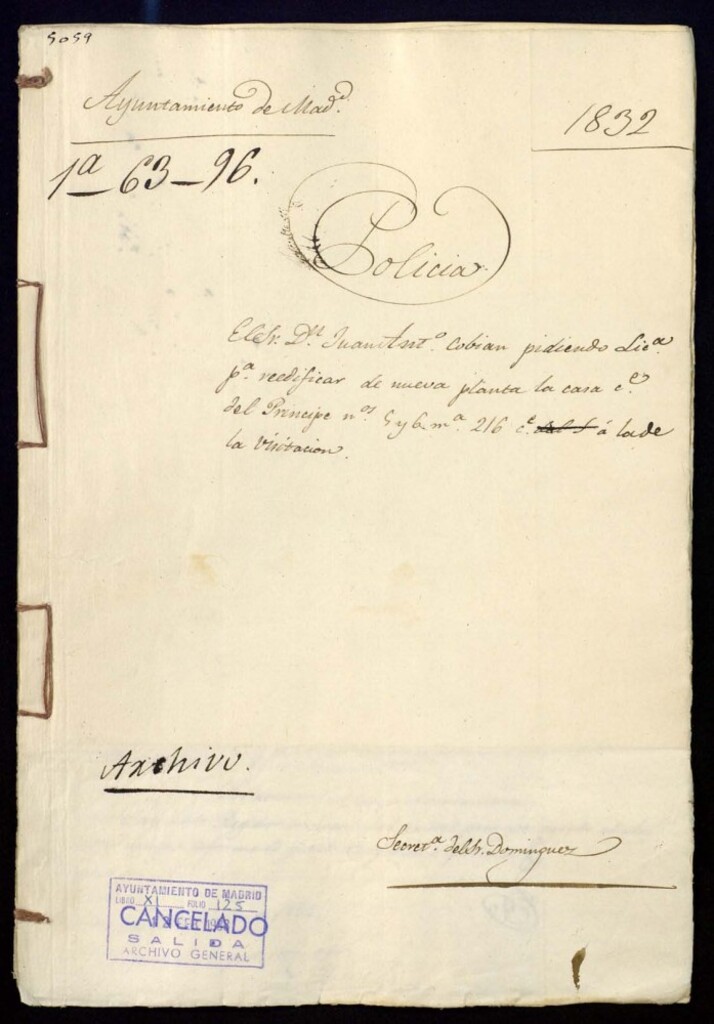 5059
Ayuntamiento de Mad.d
1832
1a—63—96.
Policia
El Sr. Dn. Juan Anto. Cobian pidiendo Lica.
pa. reedificar de nueva planta la casa ce.
del Principe nos. 5 y 6 ma. 216 ce. á la de
la Visitacion.
Archivo.
Secreta. del Sr. Dominguez
AYUNTAMIENTO DE MADRID
LIBRO XI FOLIO 125
CANCELADO
SALIDA
ARCHIVO GENERAL